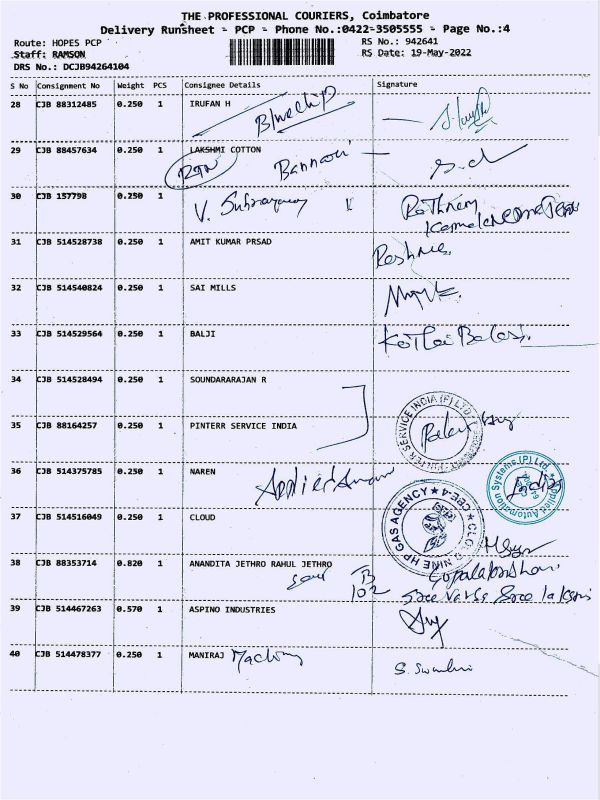 THE PROFESSIONAL COURIERS, Coimbatore
Delivery Runsheet - PCP - Phone No.:0422-3505555 - Page No.:4
Route: HOPES PCP
RS No.: 942641
Staff: RAMSON
RS Date: 19-May-2022
DRS No.: DCJB94264104
S No Consignment No Weight PCS Consignee Details Signature
28 CJB 88312485 0.250 1 IRUFAN H
Bluechip
29 CJB 88457634 0.250 1 LAKSHMI COTTON
Bannari
30 CJB 157798 0.250 1
V.
31 CJB 514528738 0.250 1 AMIT KUMAR PRSAD
32 CJB 514540824 0.250 1 SAI MILLS
33 CJB 514529564 0.250 1 BALJI
34 CJB 514528494 0.250 1 SOUNDARARAJAN R
35 CJB 88164257 0.250 1 PINTERR SERVICE INDIA
SERVICE INDIA (P) LTD
36 CJB 514375785 0.250 1 NAREN
Applied
Applied Automation Systems (P) Ltd
37 CJB 514516049 0.250 1 CLOUD
NINE HP GAS AGENCY ★ CBE-4 ★
38 CJB 88353714 0.820 1 ANANDITA JETHRO RAHUL JETHRO
B
102
39 CJB 514467263 0.570 1 ASPINO INDUSTRIES
40 CJB 514478377 0.250 1 MANIRAJ